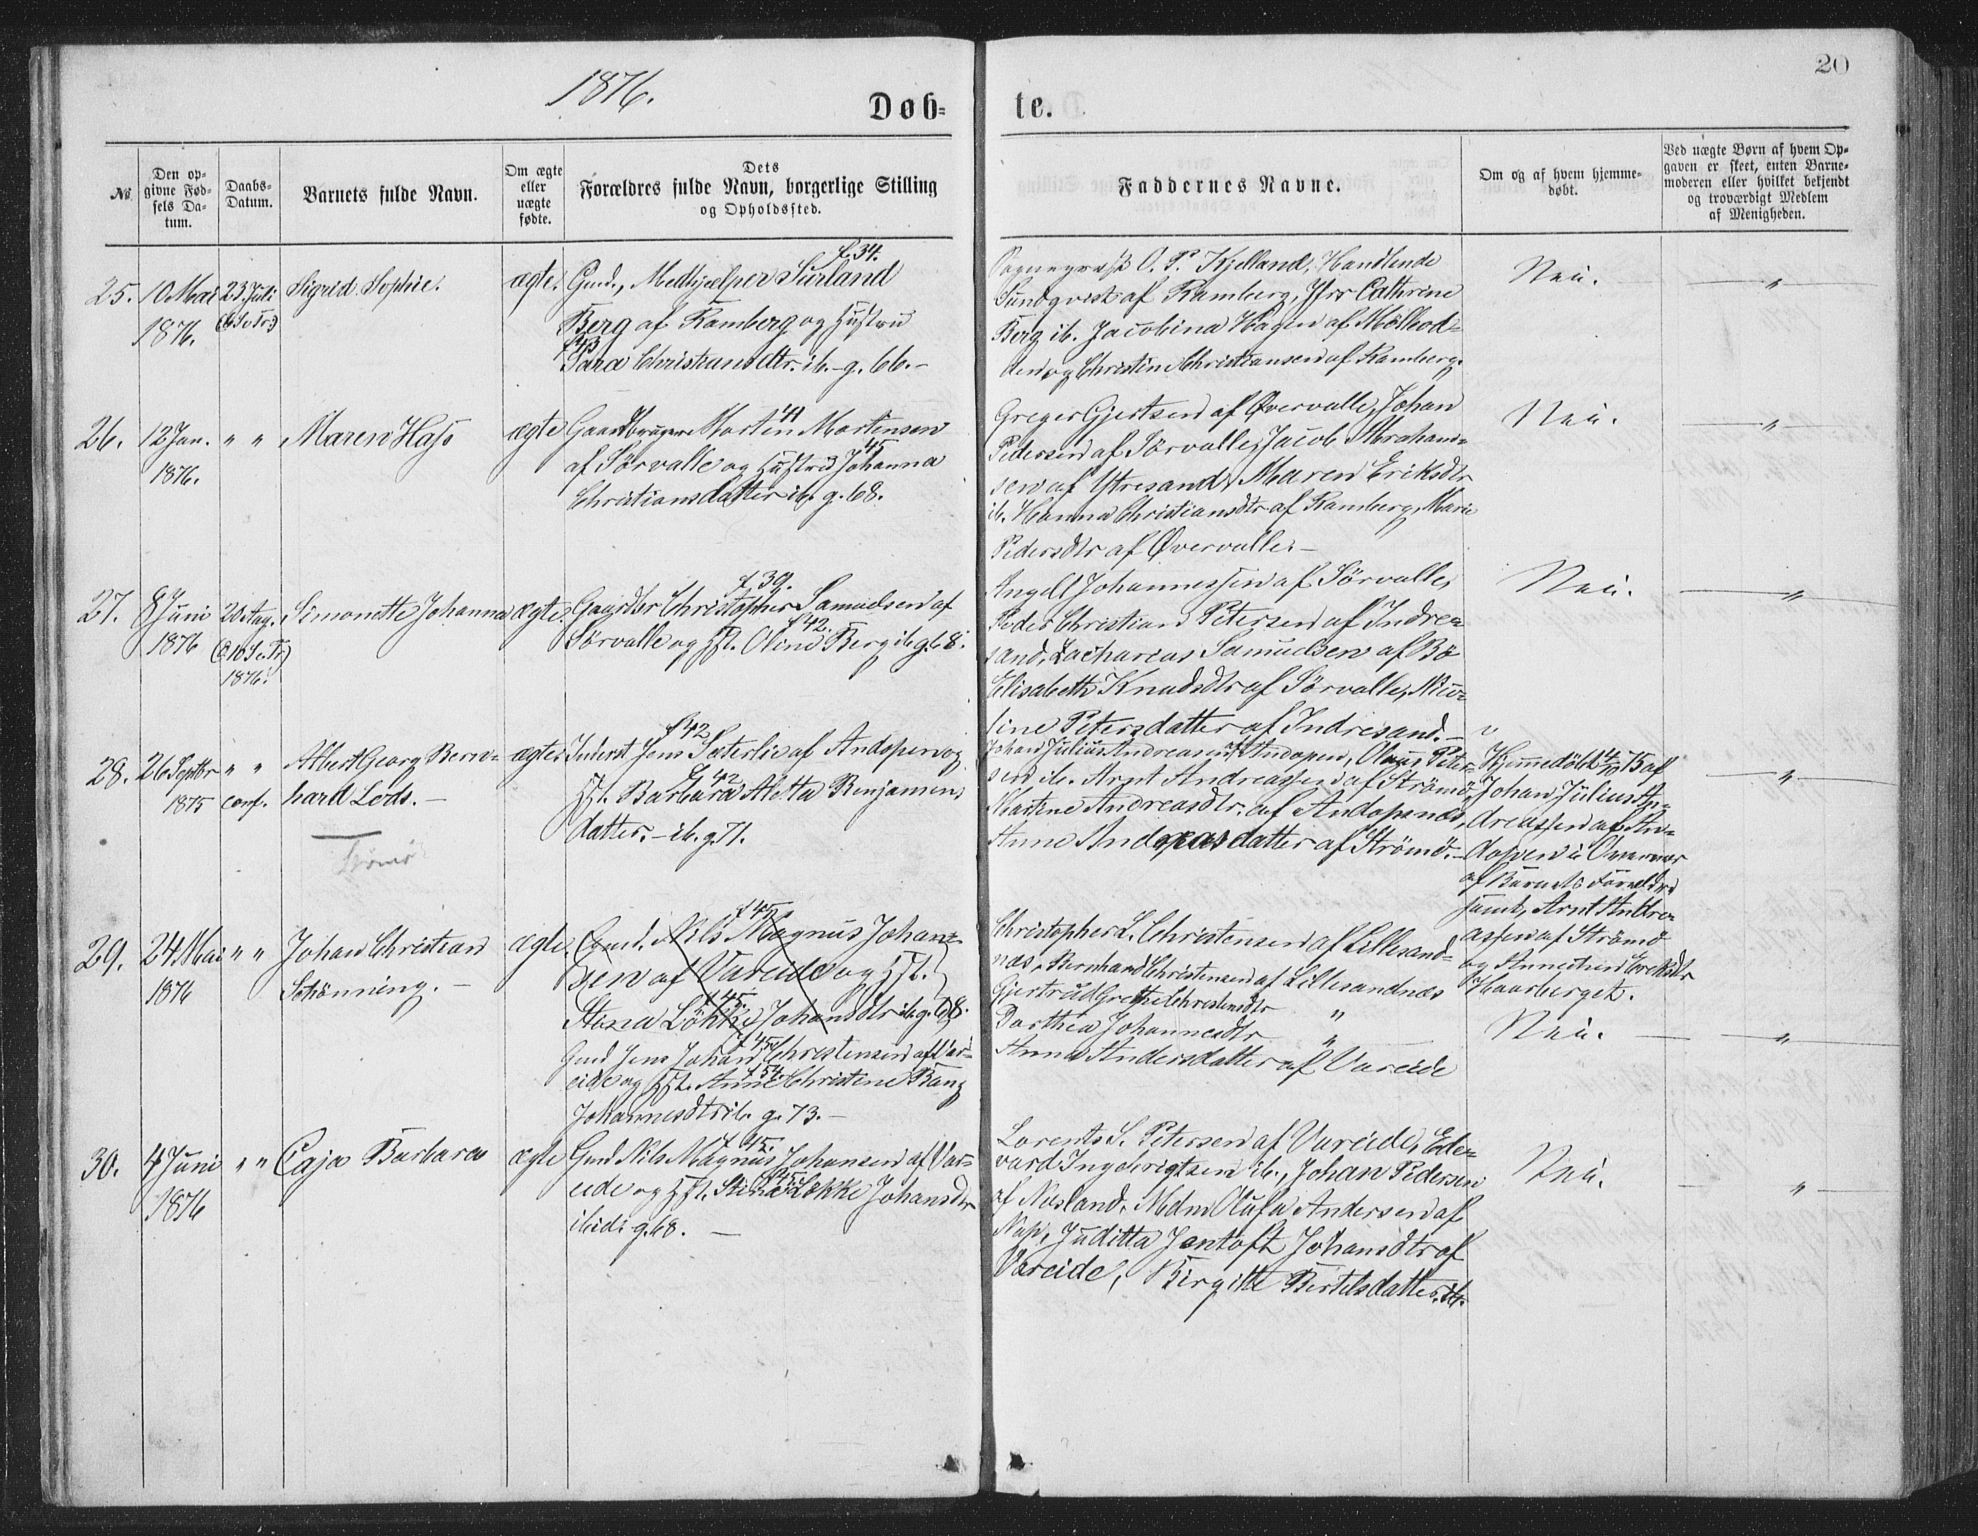 1876.
20
Døb-
te.
No.
Den op-
givne Fød-
sels Da-
tum.
Daabs-
Datum.
Barnets fulde Navn.
Om ægte
eller
uægte
fødte.
Dets
Forældres fulde Navn, borgerlige Stilling
og Opholdssted.
Faddernes Navne.
Om og af hvem hjemme-
døbt.
Ved uægte Børn af hvem Op-
gaven er skeet, enten Barne-
moderen eller hvilket bekjendt
og troværdigt Medlem
af Menigheden.
25. 10 Mai 23 Juli Sigrid Sophie. ægte.
1876.
f. 34.
Gmd., Medhjælper Surland
Berg af Ramberg og Hustru
f 43
Sara Christiansdtr. ib. - g. 66. -
O. P. Kjelland, Handlende
Sundqvist af Ramberg, Jfr Cathrine
Berg ib. Jacobina Hagen af Mölhod-
den og Christine Christiansen af Ramberg.
Nei. "
26. 12 Jan. " " Maren Hass ægte
1876.
41
Gaardbruger Morten Mortensen
45
af Sørvalle og Hustru Johanna
Christiansdatter ib. g. 68.
Greger Gjertsen af Øvervalle, Johan
Pedersen af Sørvalle, Jacob Abraham-
sen af Ytresand, Maren Eriksdtr
ib. Hanna Christiansdtr af Ramberg, Marie
Pedersdtr af Øvervalle. -
Nei. "
27. 8 Juni 20 Aug. Simonette Johanna ægte.
1876 (10 S. e. Tr)
1876.
f 39.
Gaardbr Christopher Samuelsen af
f 42.
Sørvalle og Hst. Oline Berg ib g. 68.
Angell Johannessen af Sørvalle,
Peder Christian Petersen af Indre-
sand, Zacharias Samuelsen af Bö
Elisabeth Knudsdtr af Sørvalle,
sine Petersdatter af Indresand. -
Nei. "
28. 26 Septbr " " Albert Georg Bern- ægte.
1875 conf. hard Leds. -
Tjømø
f 42
Inderst Jens Sæterlis af Andopen og
f. 42
Hst. Barbara Aletta Benjamins
datter. - ib. g. 71.
Johan Julius Andreasen af Andopen, Olaus Peter-
sen ib. Arnt Andreassen af Strömö,
Martine Andreasdtr. af Andopsnæs,
Anne Andreasdatter af Strömö. -
Hjemmedöbt 4/10 75 af
Johan Julius An-
dreassen af An-
dopen i Overvær
af Barnets Forældre
samt Arnt Andre-
assen af Strömö
og Annechen Eriksdtr
Haarberget.
"
29. 24 Mai " " Johan Christian ægte.
1876 Schönning. -
f 45
Gmd. Nils Magnus Johan-
sen af Vareide og Hst.
f 45.
Stena Lökke Johansdtr ib. g. 68.
f 45
Gmd Jens Johan Christensen af Var-
f 54.
eide og Hst. Anne Christine Bang
Johannesdtr ib. g. 73. -
Christopher L. Christensen af Lillesand-
næs, Bernhard Christensen af Lillesandnæs
Gjertrud Grethe Christensdtr "
Dorthea Johannesdtr "
Anna Andersdatter af Vareide
Nei. "
30. 4 Juni " " Caja Barbara ægte
1876
f 45.
Gmd Nils Magnus Johansen af Var-
f 45
eide og Hst. Stine Lökke Johansdtr
ibid. g. 68. -
Lorents S. Petersen af Vareide, Ed-
vard Ingebrigtsen ib., Johan Pedersen
af Nusland, Mdm Olufa Andersen af
Nap, Juditta Jentoft Johansdtr af
Vareide, Birgitte Bertelsdatter ib.
Nei. "